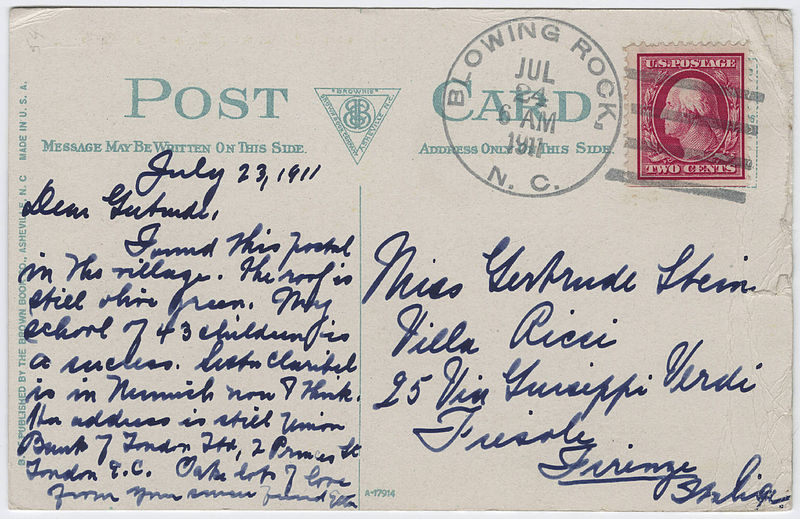 POST CARD
MESSAGE MAY BE WRITTEN ON THIS SIDE.
ADDRESS ONLY ON THIS SIDE.
"BROWNIE"
BROWN BOOK COMPANY
ASHEVILLE, N.C.
BLOWING ROCK,
N. C.
JUL
24
6 AM
1911
U.S. POSTAGE
TWO CENTS
PUBLISHED BY THE BROWN BOOK CO., ASHEVILLE, N. C MADE IN U. S. A.
July 23, 1911
Dear Gertrude,
Found this postal
in the village. The roof is
still olive green. My
school of 43 children is
a success. Sister Claribel
is in Munich now I think.
Her address is still Union
Bank of London Ltd, 2 Princes St
London E.C. Oake lots of love
from your sincere friend Etta
Miss Gertrude Stein
Villa Ricci
25 Via Guiseppi Verdi
Fiesole
Firenze
Italia
A-17914